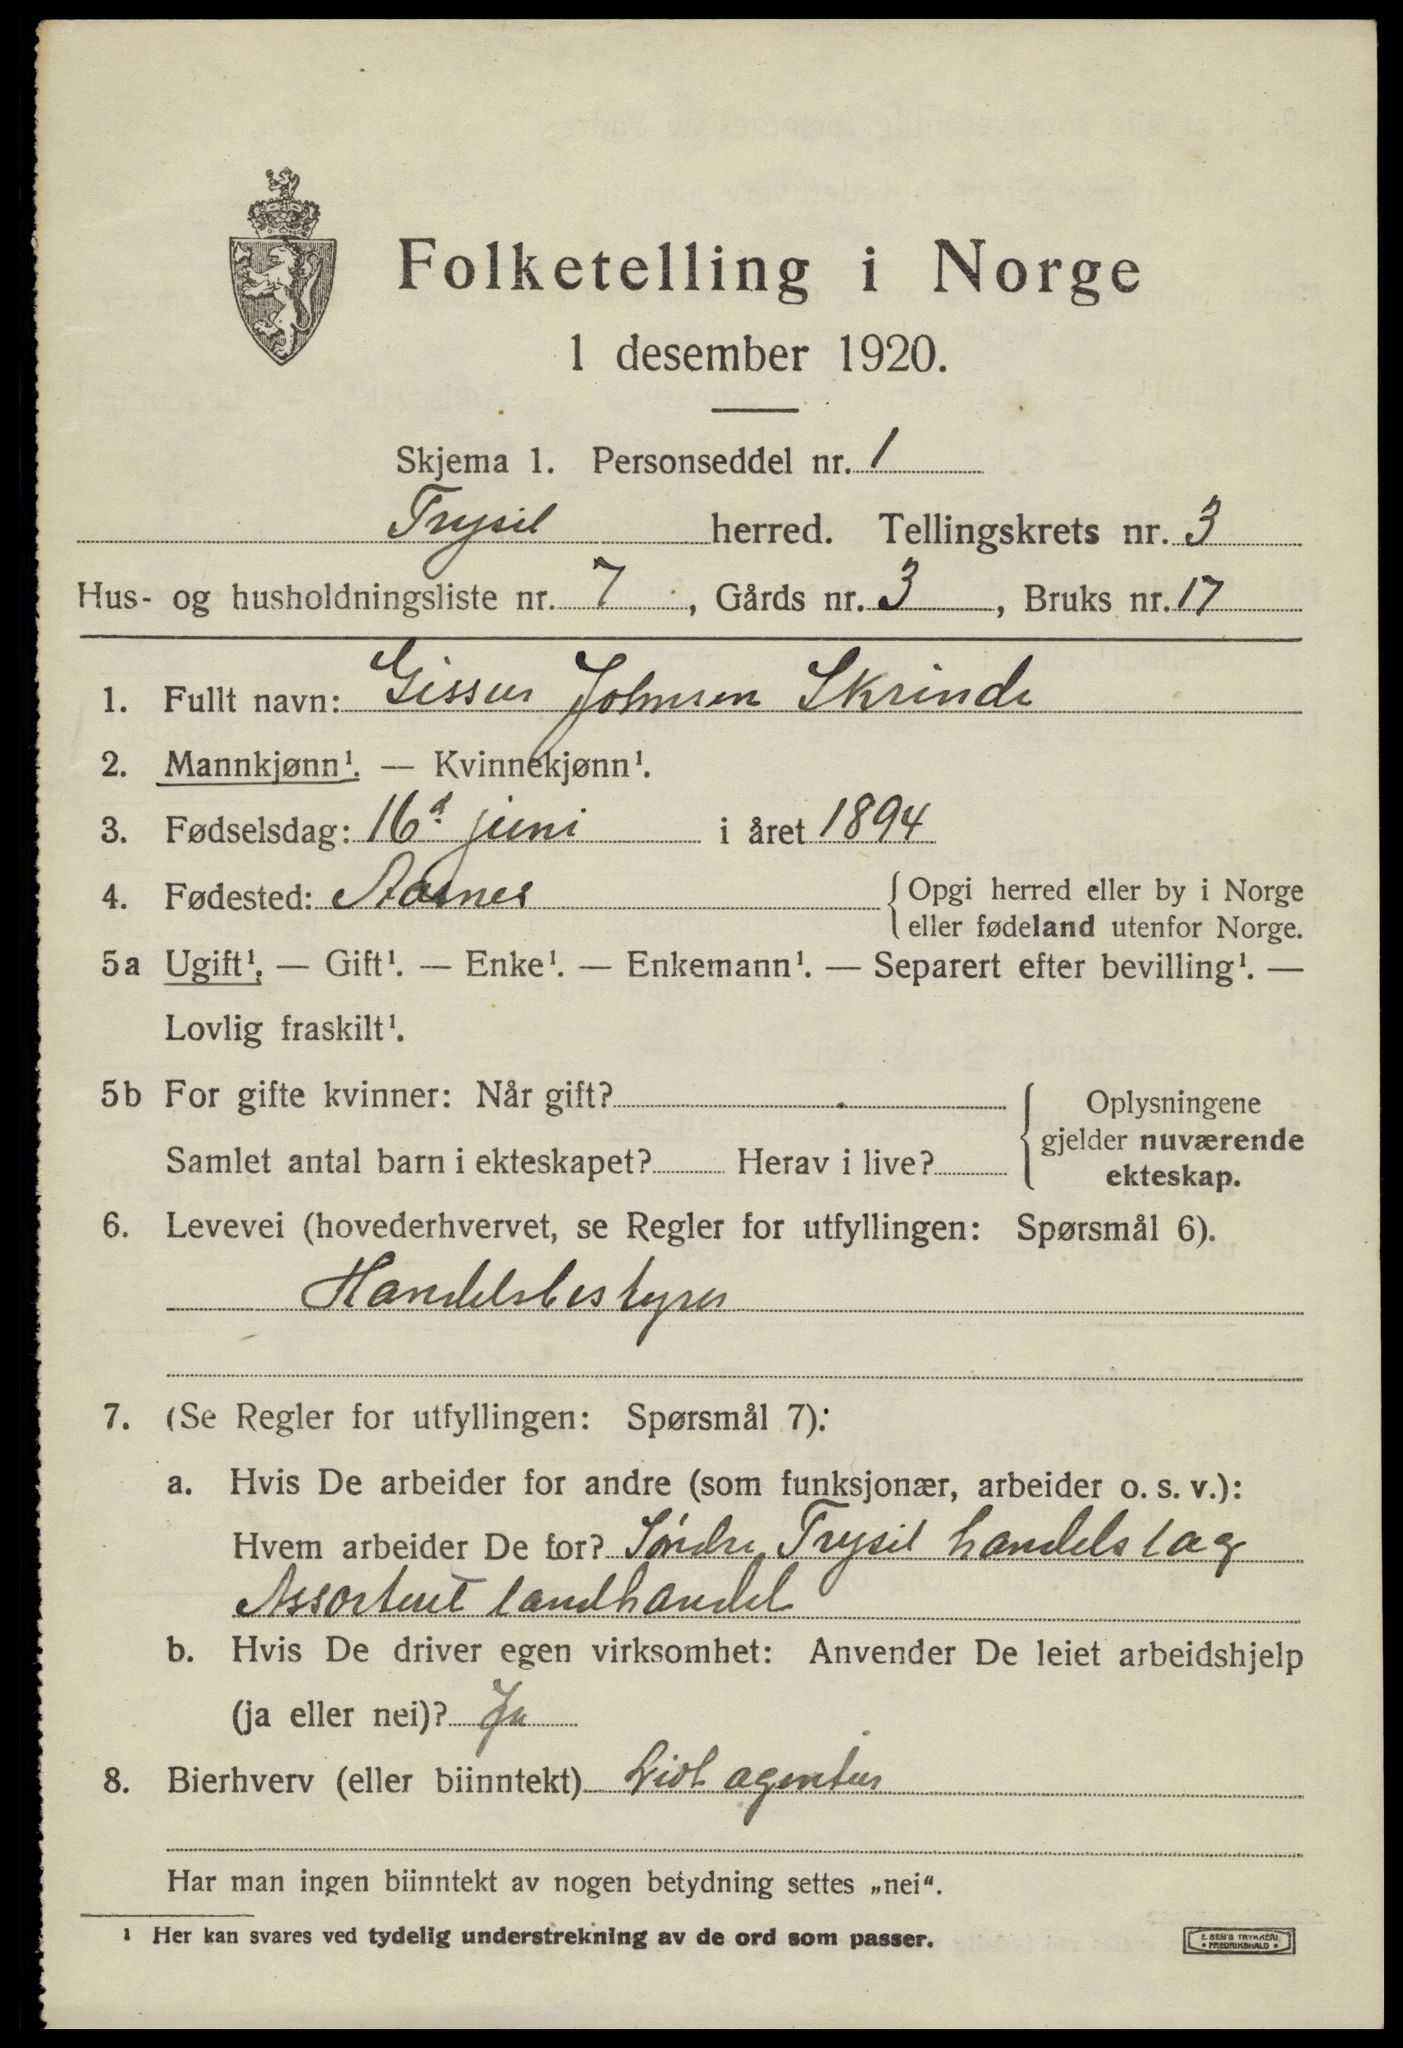 Folketelling i Norge
1 desember 1920.
Skjema 1. Personseddel nr. 1
Trysil herred. Tellingskrets nr. 3
Hus- og husholdningsliste nr. 7, Gårds nr. 3, Bruks nr. 17
1. Fullt navn: Gissur Johnsen Skrinde
2. Mannkjønn¹. — Kvinnekjønn¹.
3. Fødselsdag: 16d juni i året 1894
4. Fødested: Aasnes { Opgi herred eller by i Norge
eller fødeland utenfor Norge.
5a Ugift¹. — Gift¹. — Enke¹. — Enkemann¹. — Separert efter bevilling¹. —
Lovlig fraskilt¹.
5b For gifte kvinner: Når gift?
Samlet antal barn i ekteskapet? Herav i live?
Oplysningene
gjelder nuværende
ekteskap.
6. Levevei (hovederhvervet, se Regler for utfyllingen: Spørsmål 6).
Handelsbestyrer
7. (Se Regler for utfyllingen: Spørsmål 7):
a. Hvis De arbeider for andre (som funksjonær, arbeider o. s. v.):
Hvem arbeider De for? Søndre Trysil handelslag
Assorteret landhandel
b. Hvis De driver egen virksomhet: Anvender De leiet arbeidshjelp
(ja eller nei)? Ja
8. Bierhverv (eller biinntekt) agentur
Har man ingen biinntekt av nogen betydning settes „nei“.
¹ Her kan svares ved tydelig understrekning av de ord som passer.
E. SEM'S TRYKKERI
• FREDRIKSHALD •